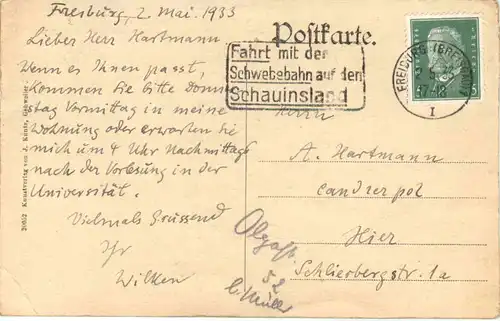 Freiburg, 2 Mai. 1933
Lieber Herr Hartmann
Wenn es Ihnen passt,
kommen Sie bitte Donners
tag Vormittag in meine
Wohnung oder erwarten Sie
mich um 4 Uhr Nachmittags
nach der Vorlesung in der
Universität.
Vielmals Grüssend
Ihr
Wilken
20652 Kunstverlag von J. Künte,
Postkarte.
Fahrt mit der
Schwebebahn auf den
Schauinsland
FREIBURG (BREISGAU)
17-18
1
5
Herrn
A. Hartmann
cand rer pol
Hier
Schlierbergstr. 1a
52